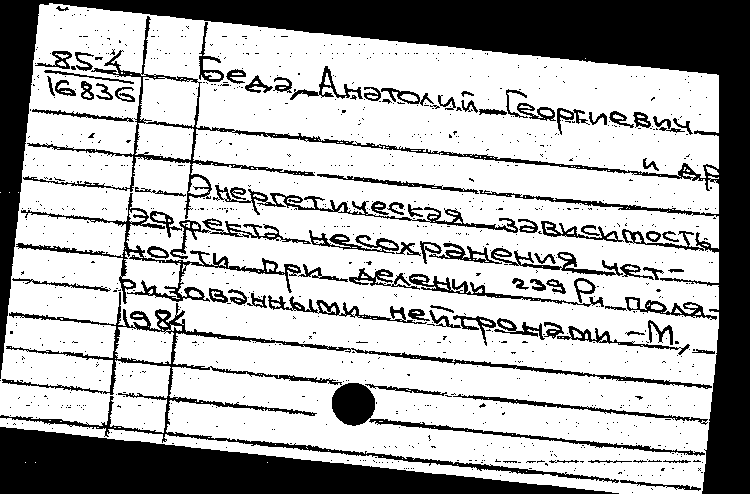 85-4
16836
Беда, Анатолий Георгиевич
и др
Энергетическая зависимость
эффекта несохранения чет-
ности при делении 239 Pu поля-
ризованными нейтронами -М.,
1984